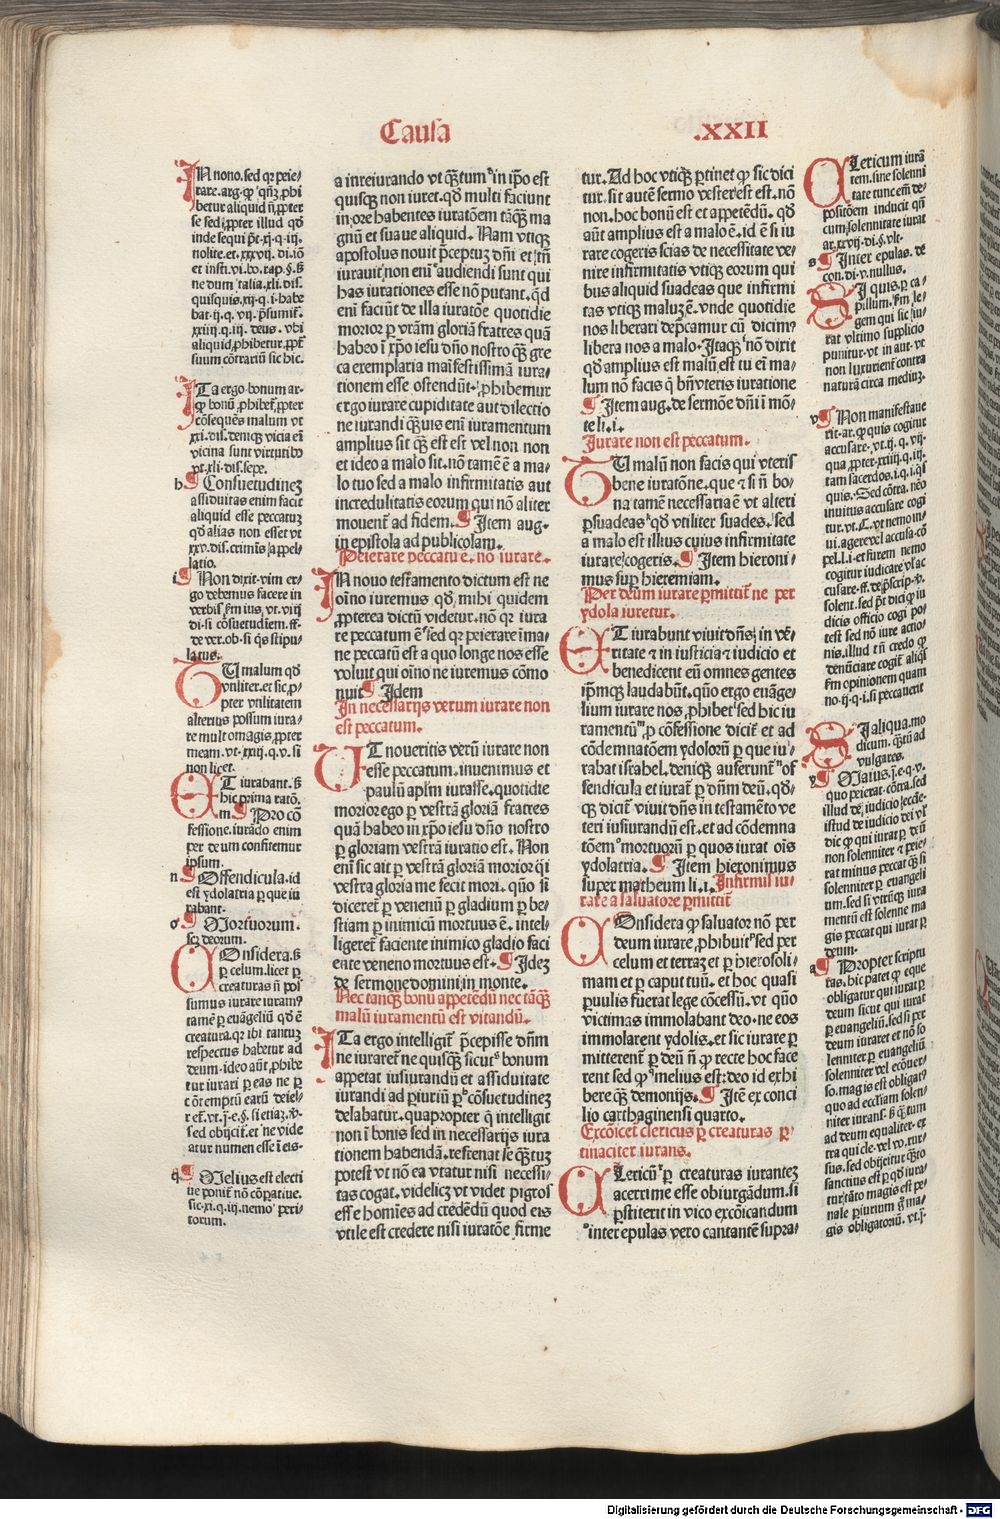 Causa .XXII
IN nono. sed qꝛ peie-
rare. arg. ꝙ qñꝫ ꝓhi
betur aliquid ñ ꝓpter
se sed ꝓpter illud qđ
inde sequi pt̄. xij. q. iij.
nolite. et. xxxvij. di. iō
quisquis. xij. q. i. habe
aliquid ꝓhibetur. ꝓpt̄
suum cōtrariū sic hic.
ITa ergo bonum ar.
ꝙ bonū ꝓhibet̄ ꝓpter
cōsequēs malum vt
xxi. dis. deniqꝫ vicia eī
vicina sunt virtutibꝰ
vt. xli. dis. sepe.
h ¶ Consuetudineꝫ
assiduitas enim facit
aliquid esse peccatuꝫ
qđ alias non esset vt
xxv. dis. criminis appel
latio.
i ¶ Non dixit. vim er-
go debemus facere in
verbis ẜm ius. vt. viij
di. si cōsuetudiēm. ff.
de ver. ob. si q̄s stipu
latus.
TU malum qđ
vtiliter. et sic ꝓ-
pter vtilitatem
alterius possum iura-
re multomagis ꝓpter
meam. vt. xxij. q. v. si
non licet.
ET iurabant. s̄
hic prima ratō.
m ¶ Pro cō
fessione. iurādo enim
per deum confitemur
ipsum.
n ¶ Offendicula. id
est ydolatria ꝑ que iu
rabant.
o ¶ Mortuorum.
scꝫ deorum.
COnsidera. s̄
ꝑ celum. licet ꝑ
creaturas ñ pos
sumus iurare iuramꝰ
tamē ꝑ euāgeliū qđ ē
creatura. qꝛ ibi tantuꝫ
respectus habetur ad
deum. ideo aūt ꝓhibe
tur iurari ꝑ eas ne ꝑ
cōtemptū earū deiel-
sed obijcit̄. et ne vide
atur numen esse ī eis.
q ¶ Melius est electi
ue ponit̄ nō cōpatiue.
sic. xi. q. iij. nemo peri-
torum.
a inreiurando vt qꝫtum in ipō est
quisqꝫ non iuret. qđ multi faciunt
in oꝛe habentes iuratōem tāqꝫ ma
gnū et suaue aliquid. Nam vtiqꝫ
apostolus nouit p̄ceptuꝫ dn̄i et tn̄
iurauit nō enī audiendi sunt qui
has iurationes esse nō putant. qđ
enī faciūt de illa iuratōe quotidie
morior ꝑ vr̄am gloriā fratres quā
habeo ī xp̄o iesu dn̄o nostro qꝫ gre
ca exemplaria maifestissimā iura-
tionem esse ostendūt. ꝓhibemur
ergo iurare cupiditate aut dilectio
ne iurandi qꝫuis enī iuramentum
amplius sit qꝫ est est vel non non
et ideo a malo sit. nō tamē ē a ma-
lo tuo sed a malo infirmitatis aut
incredulitatis eorum qui nō aliter
mouent̄ ad fidem. ¶ Item aug.
in epistola ad publicolam.
Peierare peccatū ē. nō iurare.
IN nouo testamento dictum est ne
oīno iuremus qđ mihi quidem
ꝓpterea dictū videtur. nō qꝛ iura
re peccatum ē sed qꝛ peierare īma-
ne peccatū est a quo longe nos esse
voluit qui oīno ne iuremus cōmo
nuit ¶ Idem
In necessarijs verum iurare non
est peccatum.
UT noueritis verū iurare non
esse peccatum. inuenimus et
paulū aplm̄ iurasse. quotidie
morior ego ꝑ vestrā gloriā fratres
quā habeo in xp̄o iesu dn̄o nostro
ꝑ gloriam vestrā iuratio est. Non
enī sic ait ꝑ vestrā gloriā morior q̄i
vestra gloria me fecit mori. quō si
diceret̄ ꝑ venenū ꝑ gladium ꝑ be-
stiam ꝑ inimicū mortuus ē. intel-
ligeret̄ faciente inimico gladio faci
ente veneno mortuus est. ¶ Ideꝫ
de sermone domini in monte.
Nec tanqꝫ bonū appetēdū nec tāqꝫ
malū iuramentū est vitandū.
ITa ergo intelligit̄ p̄cepisse dn̄m
ne iuraret̄ ne quisqꝫ sicut bonum
appetat iusiurandū et assiduitate
iurandi ad ꝑiuriū ꝑ cōsuetudineꝫ
delabatur. quapropter q̄ intelligit
non ī bonis sed in necessarijs iura
tionem habendā. refrenat se qꝫtuꝫ
potest vt nō ea vtatur nisi necessi-
tas cogat. videlicꝫ vt videt pigros
esse homīes ad credēdū quod eis
vtile est credere nisi iuratōe firme
tur. Ad hoc vtiqꝫ ꝑtinet ꝙ sic dici
tur. sit autē sermo vester est est. nō
non. hoc bonū est et appetēdū. qđ
aūt amplius est a malo ē. id ē si iu
rare cogeris scias de necessitate ve-
nire infirmitatis vtiqꝫ eorum qui
bus aliquid suadeas que infirmi
tas vtiqꝫ maluꝫ ē. vnde quotidie
nos liberari dep̄camur cū dicimꝰ
libera nos a malo. Itaqꝫ nō dixit
qđ amplius est malū est tu eī ma-
lum nō facis q̄ bn̄ vteris iuratione
¶ Item aug. de sermōe dn̄i ī mō-
te li. i.
Iurare non est peccatum.
TU malū non facis qui vteris
bene iuratōne. que ⁊ si ñ bo-
na tamē necessaria ē vt alteri
ꝑsuadeas qđ vtiliter suades. sed
a malo est illius cuius infirmitate
iurare cogeris. ¶ Item hieroni-
mus suꝑ hieremiam.
Per deum iurare ꝑmittit̄ ne per
ydola iuretur.
ET iurabunt viuit dn̄s ⁊ in ve-
ritate ⁊ in iusticia ⁊ iudicio et
benedicent eū omnes gentes
ip̄mqꝫ laudabūt. quō ergo euāge-
lium iurare nos ꝓhibet sed hic iu
ramentū ꝓ cōfessione dicit̄ et ad
cōdemnatōem ydolorū ꝑ que iu-
rabat israhel. deniqꝫ auferunt̄ of
fendicula et iurat̄ ꝑ dn̄m deū. qđ-
qꝫ dicit̄ viuit dn̄s in testamēto ve
teri iusiurandū est. et ad cōdemna
tōem mortuorū ꝑ quos iurat oīs
ydolatria. ¶ Item hieronimus
super matheum li. i. Infirmis iu-
rare a saluatore ꝑmittit̄
COnsidera ꝙ saluator nō per
deum iurare ꝓhibuit sed per
celum et terraꝫ et ꝑ hierosoli-
mam et ꝑ caput tuū. et hoc quasi
ꝑuulis fuerat lege cōcessū. vt quō
victimas immolabant deo. ne eos
immolarent ydolis. et sic iurare ꝑ
mitterent̄ ꝑ deū ñ ꝙ recte hoc face
rent sed ꝙ melius est: deo id exhi
bere qꝫ demonijs. ¶ Itē ex conci
lio carthaginensi quarto.
Excōicet̄ clericus ꝑ creaturas ꝑ-
tinaciter iurans.
CLericū ꝑ creaturas iuranteꝫ
acerrime esse obiurgādum. si
ꝑstiterit in vico excōicandum
inter epulas vero cantantē supra-
CLericum iurā
tem. sine solenni
tate tunc em̄ de-
positōem inducit qn̄
cum solennitate iurat
ar. xvij. di. §. vlt.
s ¶ Inter epulas. de
con. di. v. nullus.
SI quis. ꝑ ca-
pillum. ẜm le-
gem qui sic iu-
rat vltimo supplicio
punitur. vt in aut. vt
non luxurient̄ contra
naturā circa mediuꝫ.
v ¶ Non manifestaue
rit. ar. ꝙ quis cogitur
accusare. vt. ij. q. vij.
qua ꝓpter. xxiiij. q. iij.
tam sacerdos. i. q. i. q̄s
quis. Sed cōtra. nēo
inuitus accusare cogi
tur. vt. C. vt nemo in-
ui. agere vel accusa. cō
pel. l. i. et furem nemo
cogitur iudicare vl̄ ac
solent. sed pt̄ dici ꝙ iu
dicis officio cogi po-
test sed nō iure actio-
nis. illud tn̄ credo ꝙ
denūciare cogit̄ aliq̄s
ẜm opinionem quam
no. ij. q. i. si peccauerit
SI aliqua. mo
dicum. qꝫtū ad
vulgares.
y ¶ Maius. j. e. q. v.
quo peierat. cōtra. sed
illud dē iudicio eccle.
istud de iudicio dei vl̄
dic ꝙ qui iurat ꝑ deū
non solenniter ⁊ peie-
rat minus peccat qꝫ si
solenniter ꝑ euangeli
um. sed si vtrūqꝫ iura
mentū est solenne ma
gis peccat qui iurat ꝑ
deum.
a ¶ Propter scriptu
ras. hic patet ꝙ eque
obligatur qui iurat ꝑ
deum sicut qui iurat
ꝑ euangeliū. sed si per
deum iuraret et nō so
lenniter ꝑ euangeliū
solenniter vel ecōuer-
so. magis est obligatꝰ
quo ad ecclīam solen-
niter iurans. s̄ qꝫtum
ad deum equaliter. ex
sus. sed obijcitur qꝫto
sanctius est ꝑ qđ iura-
tur tāto magis est pe-
nale ꝑiurium g̊ ma-
gis obligatoriū. vt. j.
Digitalisierung gefördert durch die Deutsche Forschungsgemeinschaft - DFG